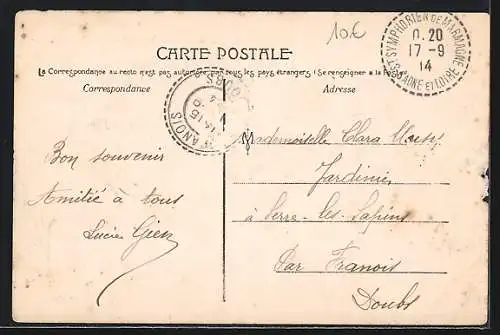 10€
ST SYMPHORIEN DE MARMAGNE
0.20
17-9
14
SAONE ET LOIRE
CARTE POSTALE
La Correspondance au recto n'est pas autorisée par tous les pays étrangers (Se renseigner à la Poste)
Correspondance
Adresse
FRANOIS
DOUBS
Mademoiselle Clara
Bon souvenir
Jardinier
Amitié à tous
à Serre-les-Sapins
Lucie
Par Franois
Doubs